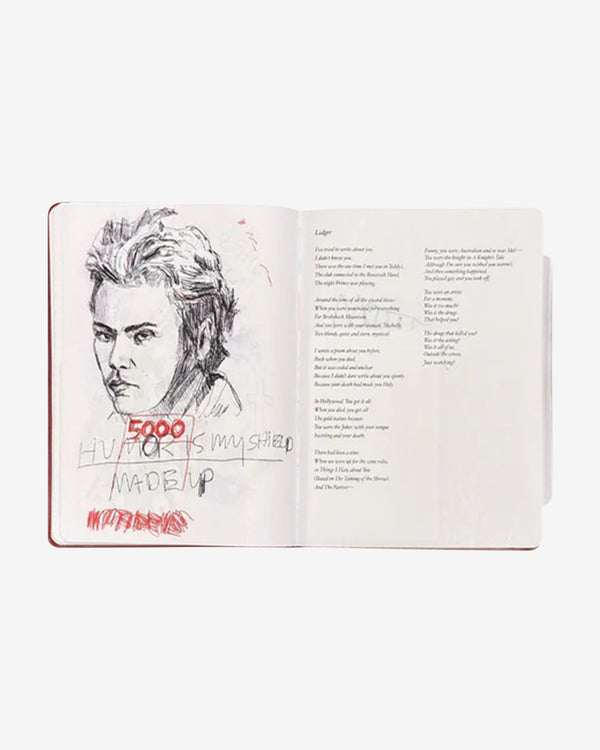 5000
HUMOR IS MY SHIELD
MADE UP
Ledger
I've tried to write about you.
I didn't know you.
There was the one time I met you in Teddy's,
The club connected to the Roosevelt Hotel,
The night Prince was playing,
Around the time of all the award shows
When you were nominated for everything
For Brokeback Mountain.
And you were with your woman, Michelle,
Two blonds, quiet and stern, mystical.
I wrote a poem about you before,
Back when you died,
But it was coded and unclear
Because I didn't dare write about you openly
Because your death had made you Holy.
In Hollywood. You got it all
When you died, you got all
The gold statues because
You were the Joker, with your tongue
Swirling and your death.
There had been a time
When we were up for the same roles,
10 Things I Hate about You
(Based on The Taming of the Shrew),
And The Patriot—
Funny, you were Australian and so was Mel—
You were the knight in A Knight's Tale
Although I'm sure you wished you weren't.
And then something happened,
You played gay, and you took off.
You were an artist
For a moment.
Was it too much?
Was it the drugs
That helped you?
The drugs that killed you?
Was it the acting?
Was it all of us,
Outside the screen,
Just watching?